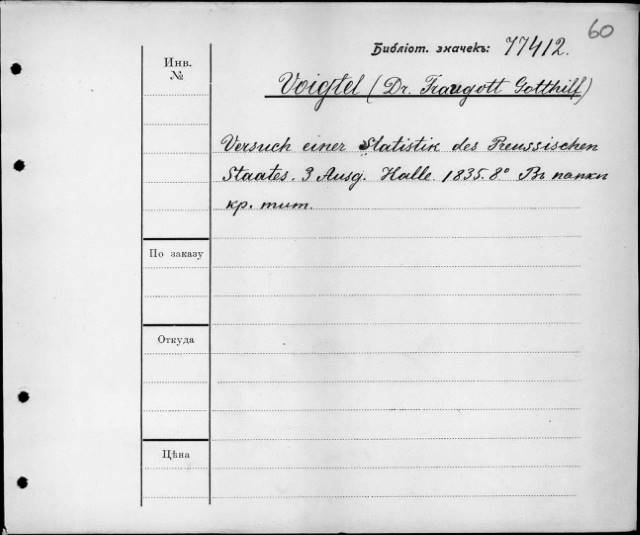 60
Библіот. значекъ: 77412.
Инв.
№
Voigtel (Dr. Traugott Gotthilf)
Versuch einer Statistik des Preussischen
Staates. 3 Ausg. Halle 1835. 8° Въ папки
кр. тит.
По заказу
Откуда
Цѣна